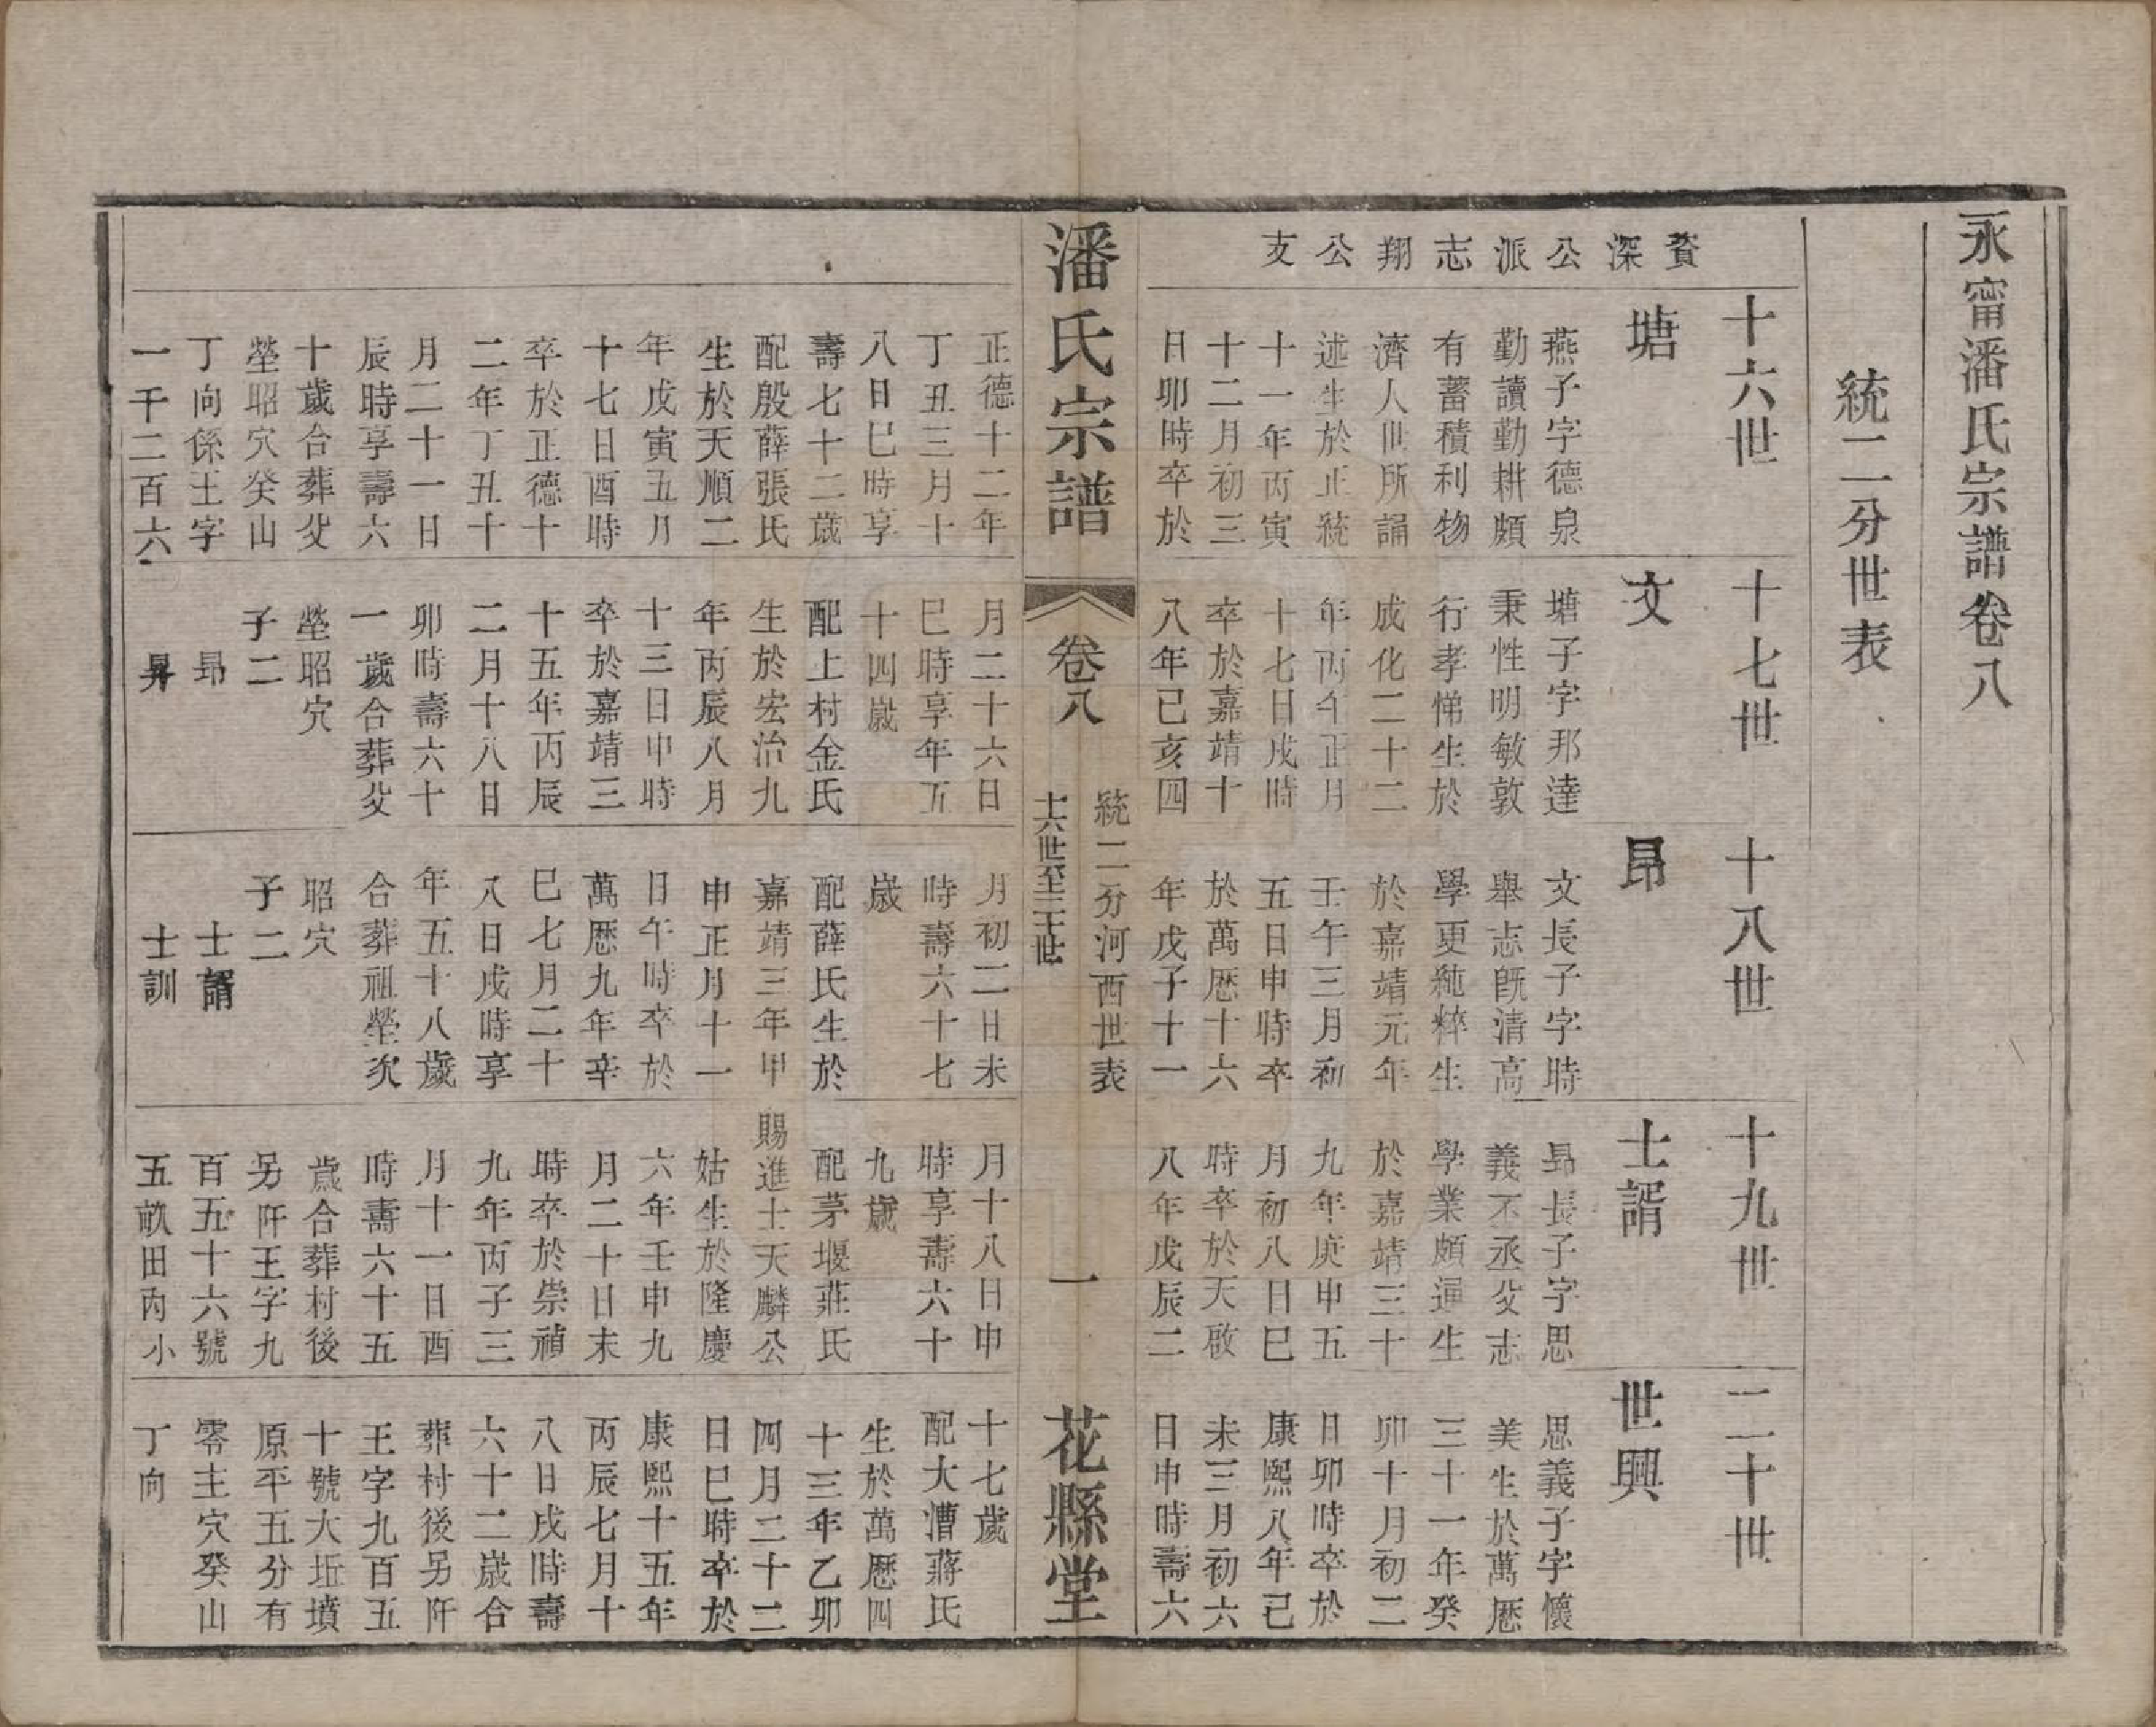 永甯潘氏宗譜卷八
統二分世表
賫深公派志翔公支
十六世
塘
燕子字德泉
勤讀勤耕頗
有蓄積利物
濟人世所誦
述生於正統
十一年丙寅
十二月初三
日卯時卒於
正德十二年
丁丑三月十
八日巳時享
壽七十二歲
配殷薛張氏
生於天順二
年戊寅五月
十七日酉時
卒於正德十
二年丁丑十
月二十一日
辰時享壽六
十歲合葬父
塋昭穴癸山
丁向係王字
一千二百六
十七世
文
塘子字邦達
秉性明敏敦
行孝悌生於
成化二十二
年丙午正月
十七日戌時
卒於嘉靖十
八年己亥四
月二十六日
巳時享年五
十四歲
配上村金氏
生於宏治九
年丙辰八月
十三日申時
卒於嘉靖三
十五年丙辰
二月十八日
卯時壽六十
一歲合葬父
塋昭穴
子二
昻
昇
十八世
昻
文長子字時
舉志旣清高
學更純粹生
於嘉靖元年
壬午三月初
五日申時卒
於萬歷十六
年戊子十一
月初二日未
時壽六十七
歲
配薛氏生於
嘉靖三年甲
申正月十一
日午時卒於
萬歷九年辛
巳七月二十
八日戌時享
年五十八歲
合葬祖塋次
昭穴
子二
士諝
士訓
十九世
士諝
昻長子字思
義不丞父志
學業頗逼生
於嘉靖三十
九年庚申五
月初八日巳
時卒於天啟
八年戊辰二
月十八日申
時享壽六十
九歲
配茅堰莊氏
賜進士天麟公
姑生於隆慶
六年壬申九
月二十日未
時卒於崇禎
九年丙子三
月十一日酉
時壽六十五
歲合葬村後
另阡王字九
百五十六號
五畝田內小
二十世
世興
思義子字懷
美生於萬歷
三十一年癸
卯十月初二
日卯時卒於
康熙八年己
未三月初六
日申時壽六
十七歲
配大漕蔣氏
生於萬歷四
十三年乙卯
四月二十二
日巳時卒於
康熙十五年
丙辰七月十
八日戌時壽
六十二歲合
葬村後另阡
王字九百五
十號大坵墳
原平五分有
零主穴癸山
丁向
潘氏宗譜
卷八
統二分河西世表
十六世至二十世
一
花縣堂